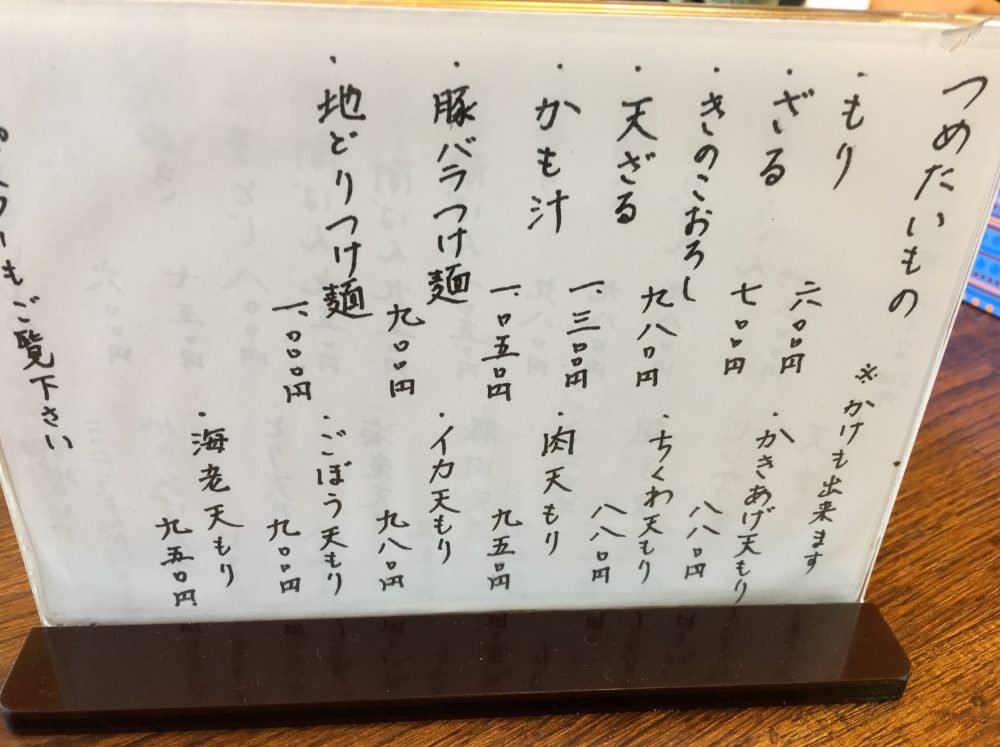 つめたいもの
・もり 六〇〇円
・ざる 七〇〇円
・きのこおろし 九八〇円
・天ざる 一、三〇〇円
・かも汁 一、〇五〇円
・豚バラつけ麺 九〇〇円
・地どりつけ麺 一、〇〇〇円
※かけも出来ます
・かきあげ天もり 八八〇円
・ちくわ天もり 八八〇円
・肉天もり 九五〇円
・イカ天もり 九八〇円
・ごぼう天もり 九〇〇円
・海老天もり 九五〇円
もご覧下さい